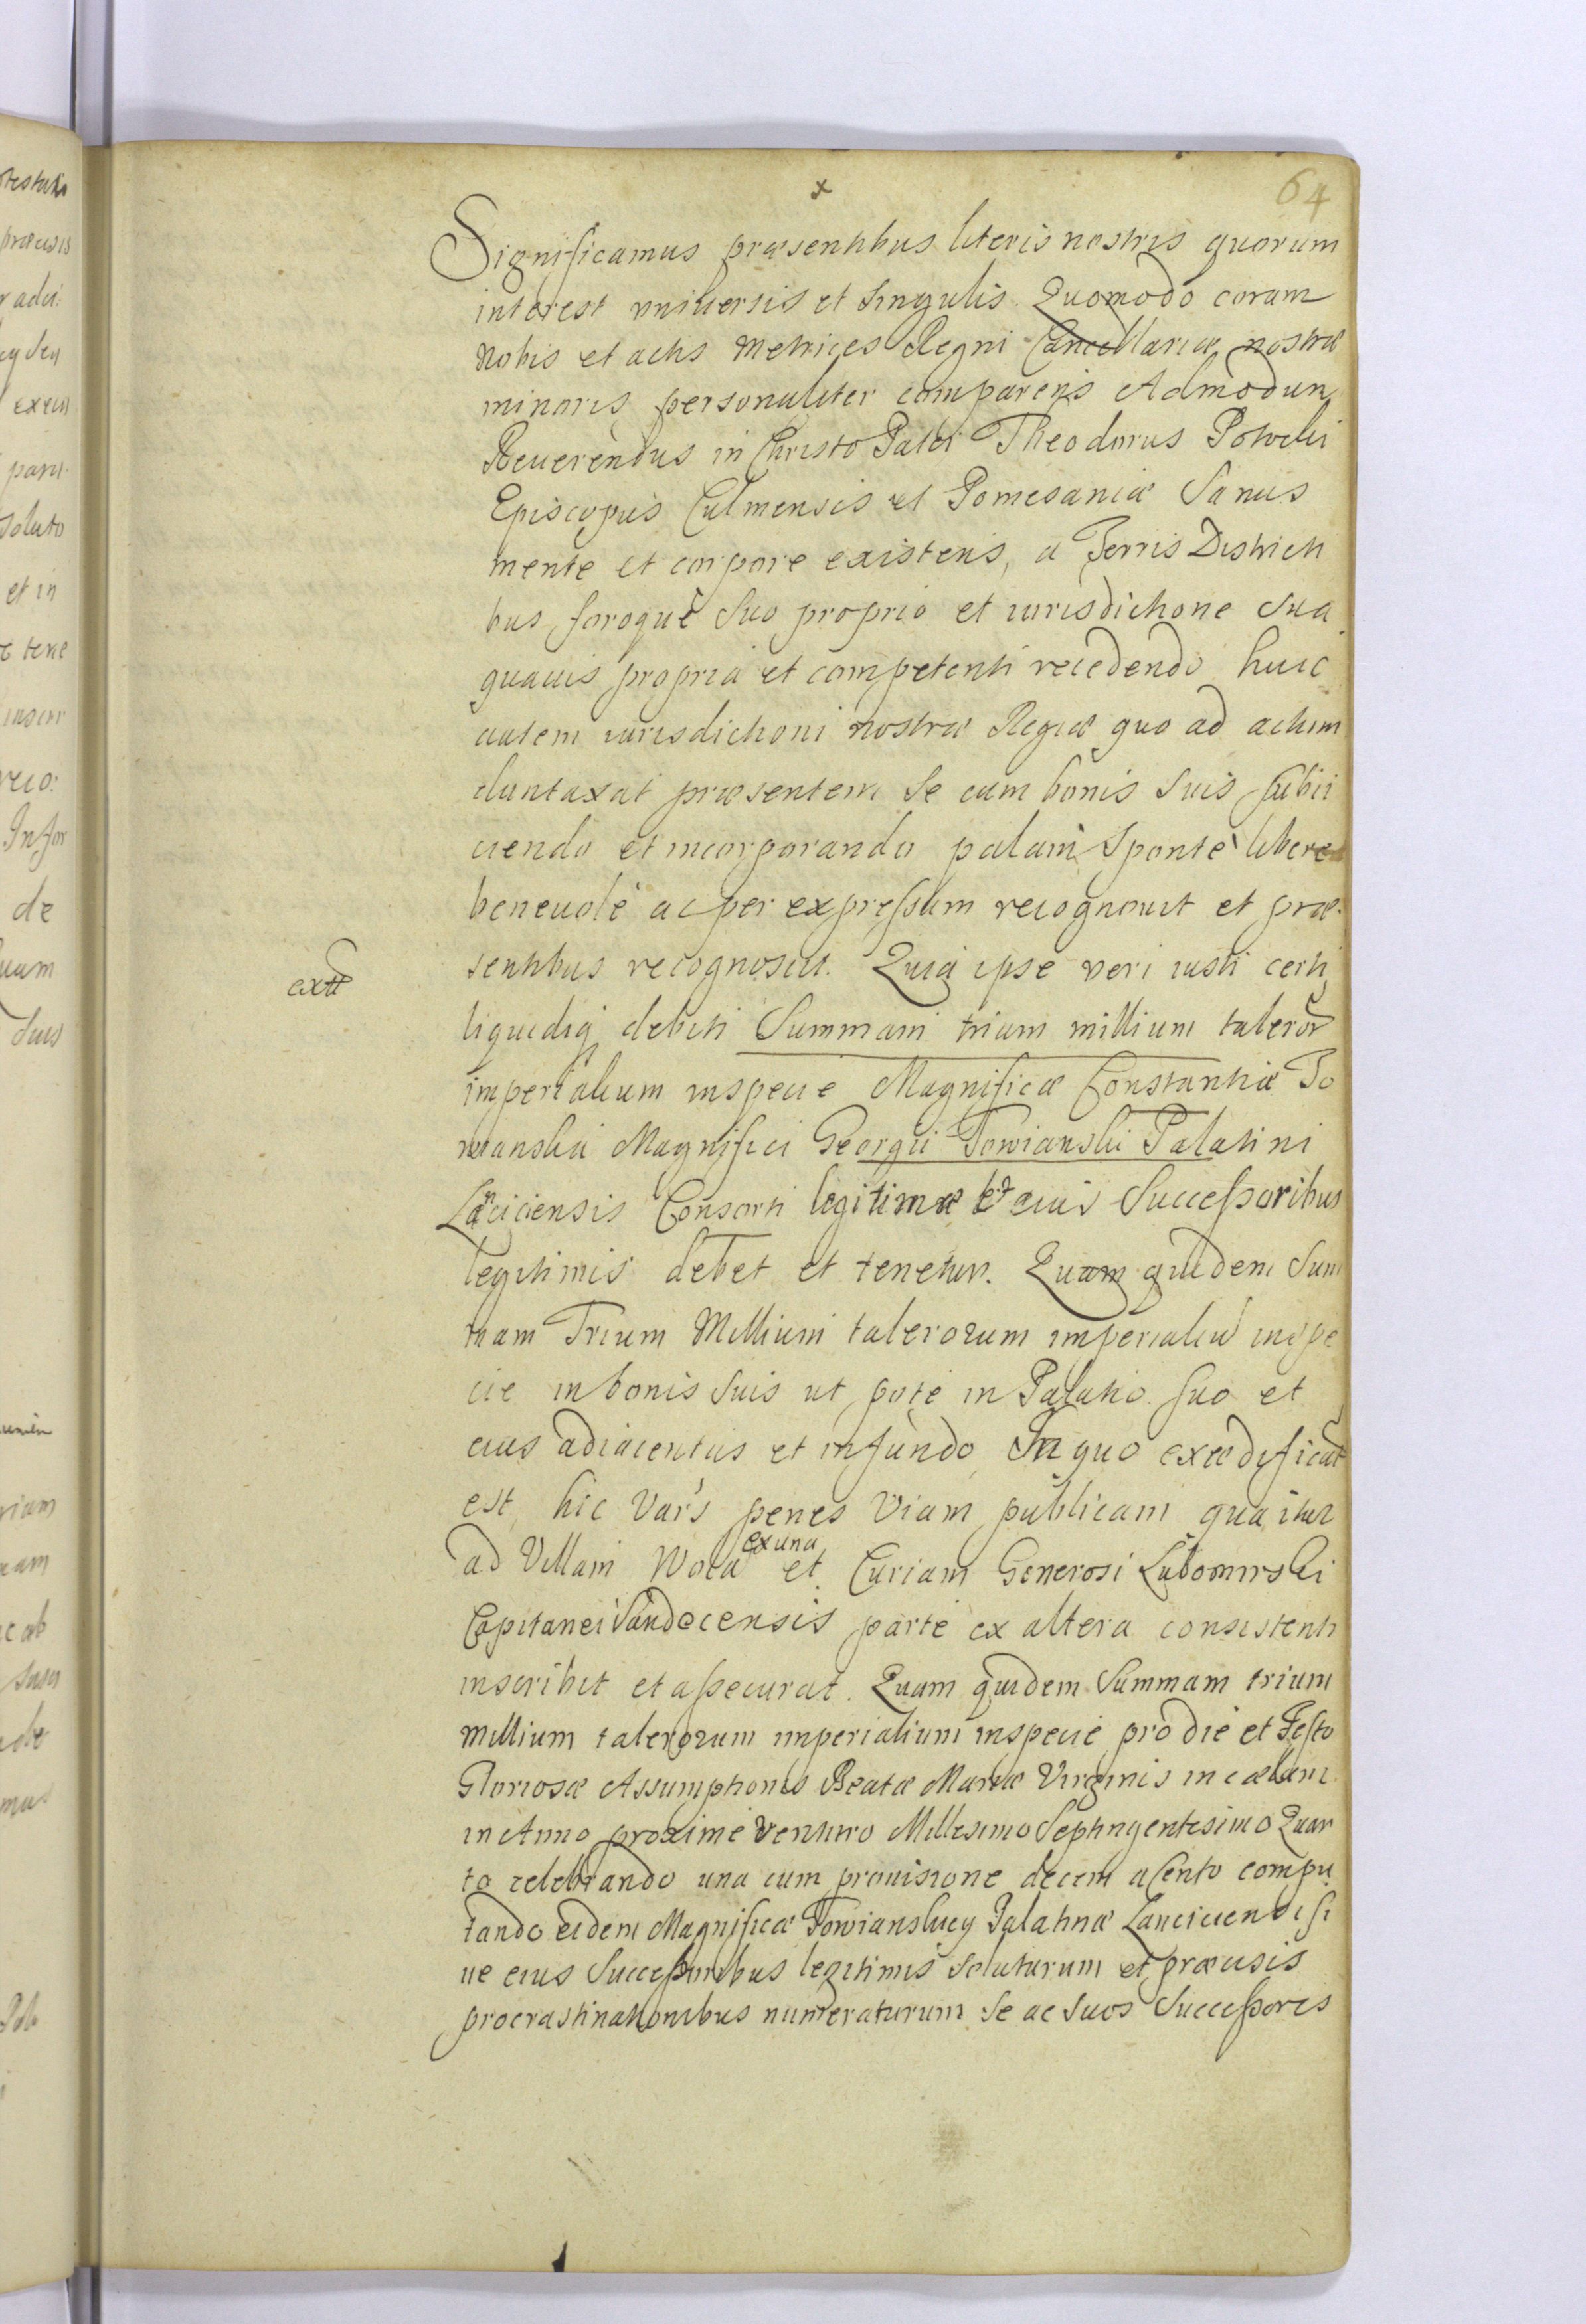 64
x
Significamus præsentibus literis nostris quorum
interest vniuersis et singulis. Quomodo coram
Nobis et actis Metrices Regni Cancellariæ nostræ
minoris personaliter comparens Admodum
Reuerendus in Christo Pater Theodorus Potocki
Episcopus Culmensis et Pomesaniæ Sanus
mente et corpore existens, a Terris Districti
bus foroque suo proprio et iurisdictione sua
quauis propria et competenti recedendo huic
autem iurisdictioni nostræ Regiæ quo ad actum
duntaxat præsentem se cum bonis suis subii
ciendo et incorporando palam sponte libere
beneuole ac per expressum recognouit et præ
sentibus recognoscit. Quia ipse veri iusti certi
extt
liquidiq debiti Summam trium millium taleror
imperialium inspecie Magnificæ Constantiæ To
wianska Magnifici Georgii Towianski Palatini
Lanciciensis Consorti legitimæ et eius Successoribus
legitimis debet et tenetur. Quam quidem Sum
mam Trium Millium talerorum imperialiu inspe
cie in bonis suis ut pote in Palatio suo et
eius adiacentiis et in fundo In quo exædificat
est hic Vars penes Viam publicam qua itur
ad Villam Wola ex una et Curiam Generosi Lubomirski
Capitanei Sandecensis parte ex altera consistenti
inscribit et assecurat. Quam quidem Summam trium
Millium talerorum imperialium inspecie pro die et Festo
Gloriosæ Assumptionis Beatæ Mariæ Virginis in cælum
in Anno proxime venturo Millesimo Septingentesimo Quar
to celebrando una cum prouisione decem a Cento compu
tando eidem Magnificæ Towianskiey Palatinæ Lanciciensi si
ue eius Successoribus legitimis soluturum et præcisis
procrastinationibus numeraturum se ac suos Successores